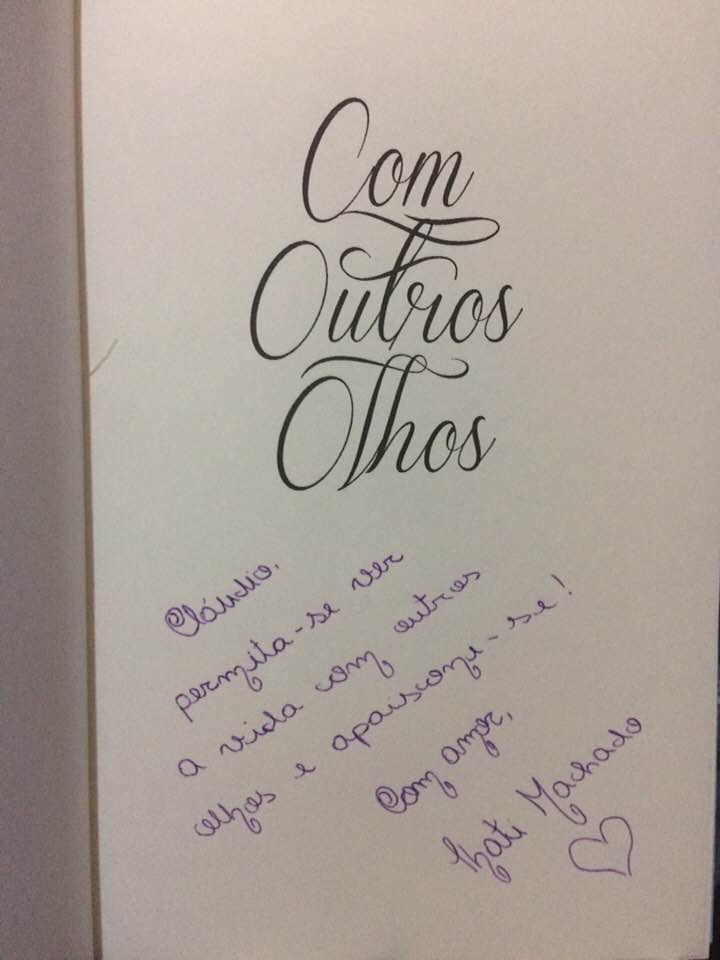 Com
Outros
Olhos
Cláudio,
permita-se ver
a vida com outros
olhos e apaixone-se!
Com amor,
Kati Machado